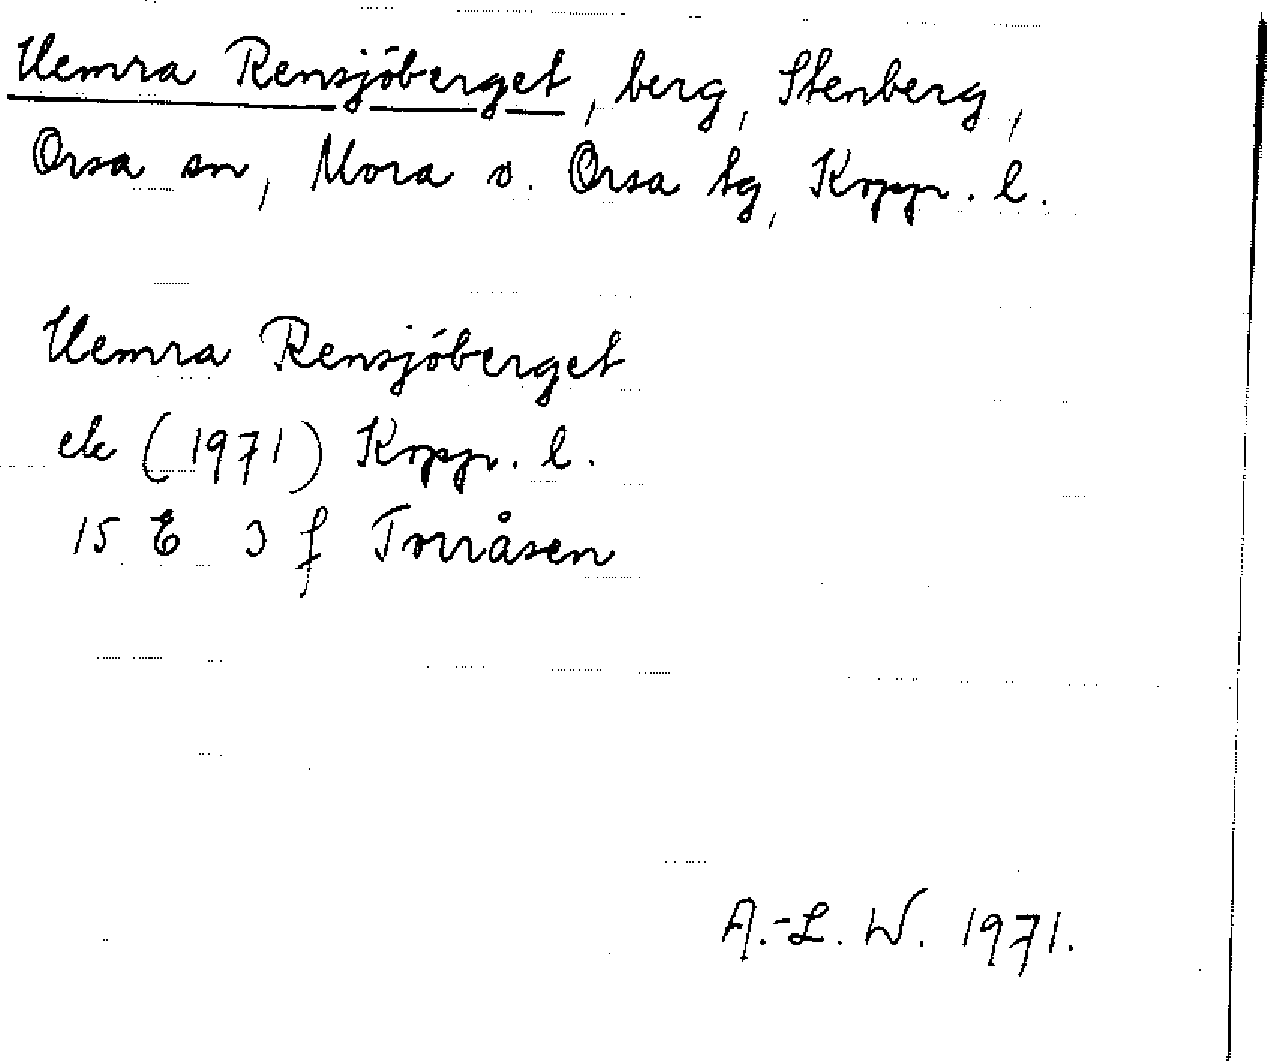 Hemra Rensjöberget, berg, Stenberg,
Orsa sn, Mora o. Orsa tg, Kopp. l.
Hemra Rensjöberget
ek (1971) Kopp. l.
15 E 3 f Torråsen
A.-L. W. 1971.